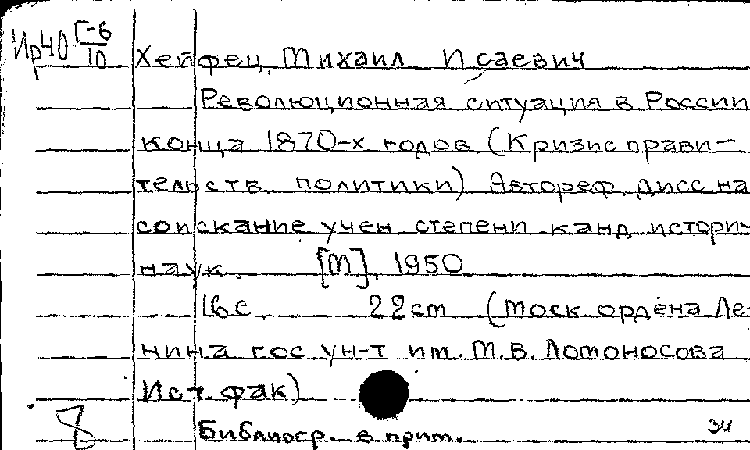 Ир40 Г-6/10
Хейфец, Михаил Исаевич
Революционная ситуация в России
конца 1870-х годов (Кризис прави-
тельств. политики) Автореф. дисс на
соискание учен степени канд истори
наук. [М], 1950
16 с. 22 см (Моск ордена Ле-
нина гос ун-т им. М.В. Ломоносова
Ист. фак)
8 Библиогр. в прим.